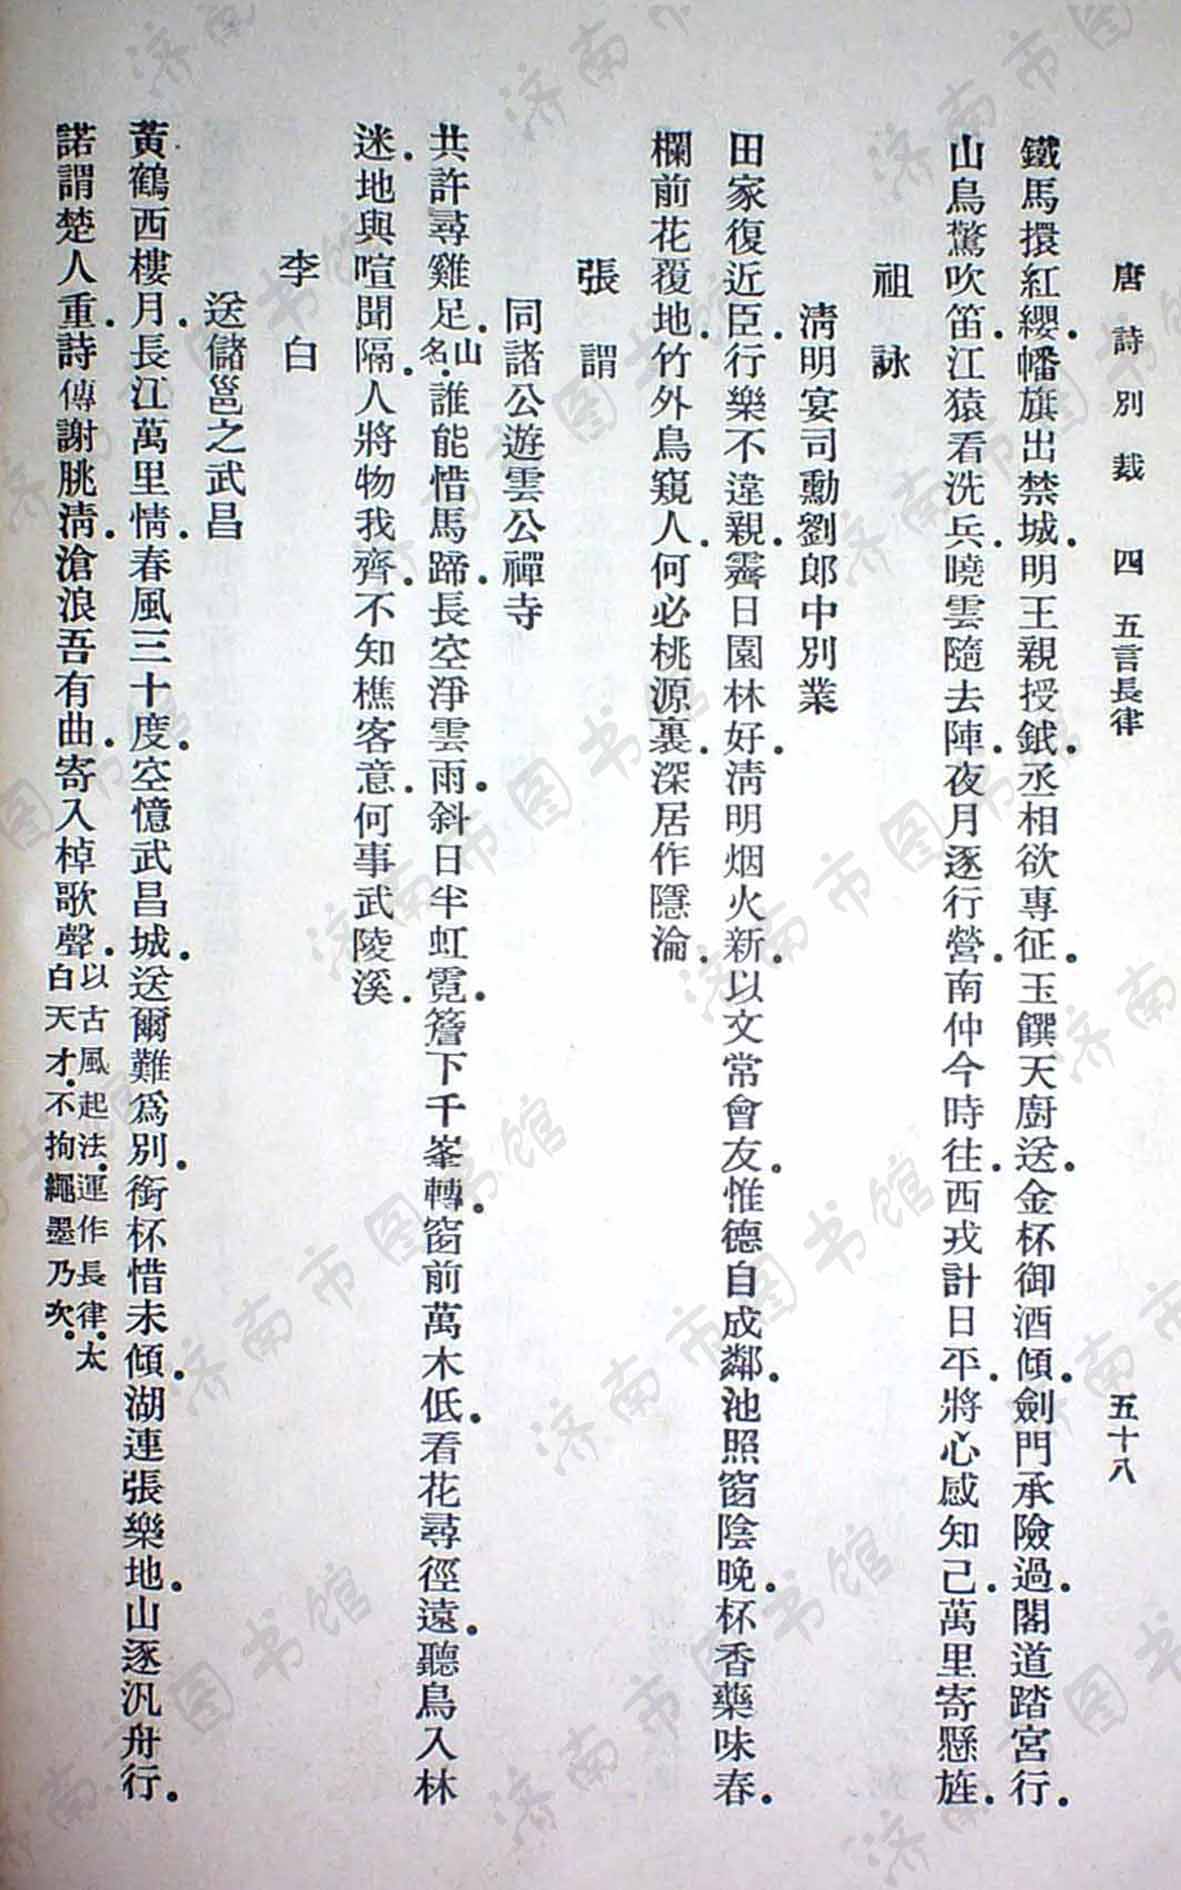 唐詩別裁 四 五言長律 五十八
鐵馬擐紅纓。幡旗出禁城。明王親授鉞。丞相欲專征。玉饌天廚送。金杯御酒傾。劍門承險過。閣道踏宮行。
山鳥驚吹笛。江猿看洗兵。曉雲隨去陣。夜月逐行營。南仲今時往。西戎計日平。將心感知己。萬里寄懸旌。
祖詠
淸明宴司勳劉郎中別業
田家復近臣。行樂不違親。霽日園林好。淸明烟火新。以文常會友。惟德自成鄰。池照窗陰晚。杯香藥味春。
欄前花覆地。竹外鳥窺人。何必桃源裏。深居作隱淪。
張謂
同諸公遊雲公禪寺
共許尋雞足。山名。誰能惜馬蹄。長空淨雲雨。斜日半虹霓。簷下千峯轉。窗前萬木低。看花尋徑遠。聽鳥入林
迷。地與喧聞隔。人將物我齊。不知樵客意。何事武陵溪。
李白
送儲邕之武昌
黃鶴西樓月。長江萬里情。春風三十度。空憶武昌城。送爾難爲別。銜杯惜未傾。湖連張樂地。山逐汎舟行。
諾謂楚人重。詩傳謝朓淸。滄浪吾有曲。寄入棹歌聲。以古風起法。運作長律。太白天才。不拘繩墨乃次。
济南市图书馆